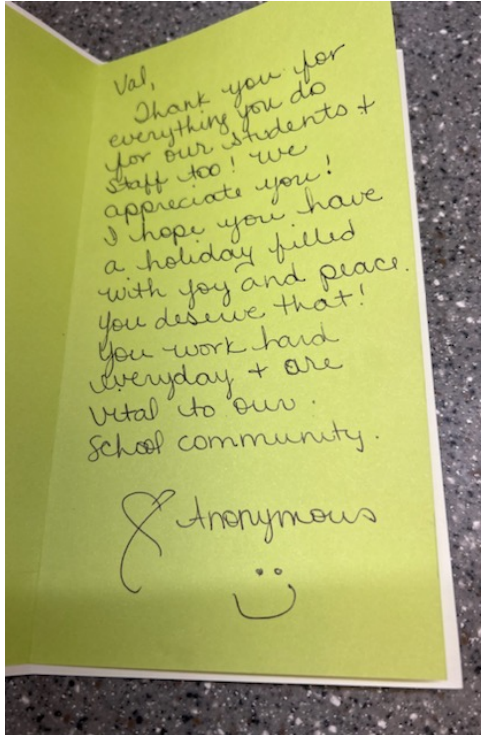 Val,
Thank you for
everything you do
for our students +
staff too! We
appreciate you!
I hope you have
a holiday filled
with joy and peace.
You deserve that!
You work hard
everyday + are
vital to our
school community.
Anonymous